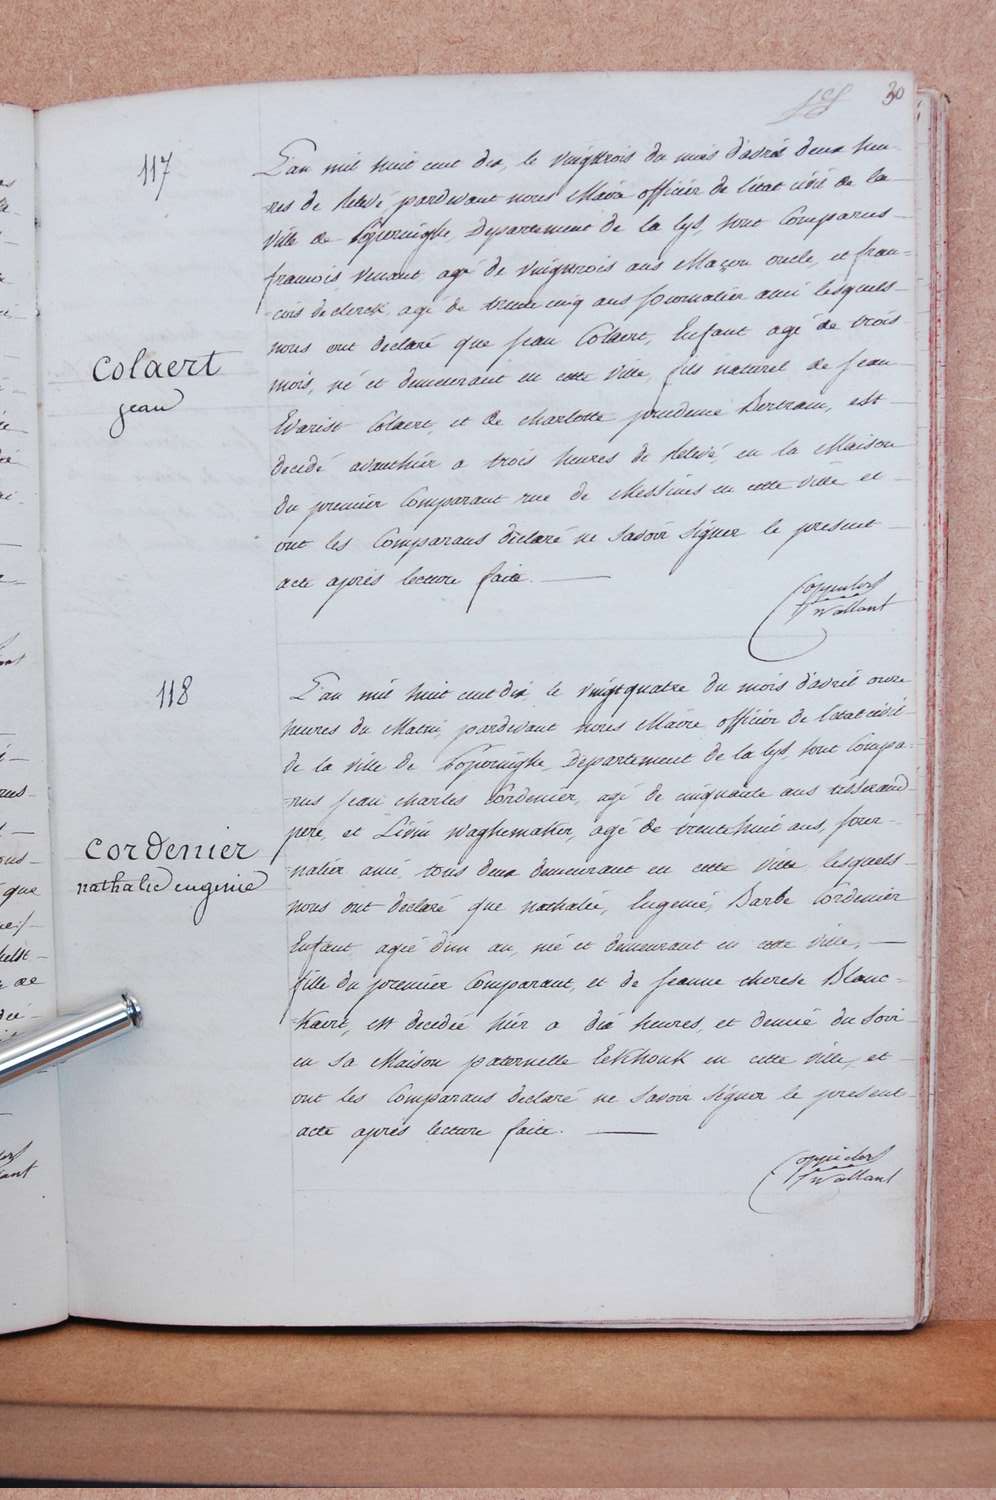 30
117
colaert
jean
L'an mil huit cent dix, le vingttrois du mois d'avril deux heu-
-res de relevé, pardevant nous Maire officier de l'état civil de la
ville de Poperinghe, Departement de la lys, sont Comparus
francois venant, agé de vingttrois ans Maçon oncle, et fran=
cois de clerck, agé de trente cinq ans journalier ami lesquels
nous ont declaré que jean Colaert, Enfant agé de trois
mois, né et demeurant en cette ville, fils naturel de jean
Evarist Colaert, et de charlotte prudence Bertram, est
decedé avanthier a trois heures de relevé, en la Maison
du premier Comparant rue de Messines en cette ville et
ont les Comparans déclaré ne savoir signer le present
acte aprés lecture faite.
118
cordenier
nathalie eugenie
L'an mil huit cent dix, le vingtquatre du mois d'avril onze
heures du Matin, pardevant nous Maire officier de l'état civil
de la ville de Poperinghe, Departement de la lys, sont Compa-
-rus jean charles Cordenier, agé de cinquante ans tisserand
pere, et Livin Waghematter, agé de trentehuit ans, jour-
nalier ami, tous deux demeurant en cette ville lesquels
nous ont declaré que nathalie, Eugenie, Barbe Cordenier
Enfant, agée d'un an, née et demeurant en cette ville,
fille du premier Comparant, et de jeanne therese Blanc-
-kaert, est decedée hier a dix heures, et demie du soir
en sa Maison paternelle Eekhouk en cette ville, et
ont les Comparans declaré ne savoir signer le present
acte aprés lecture faite.